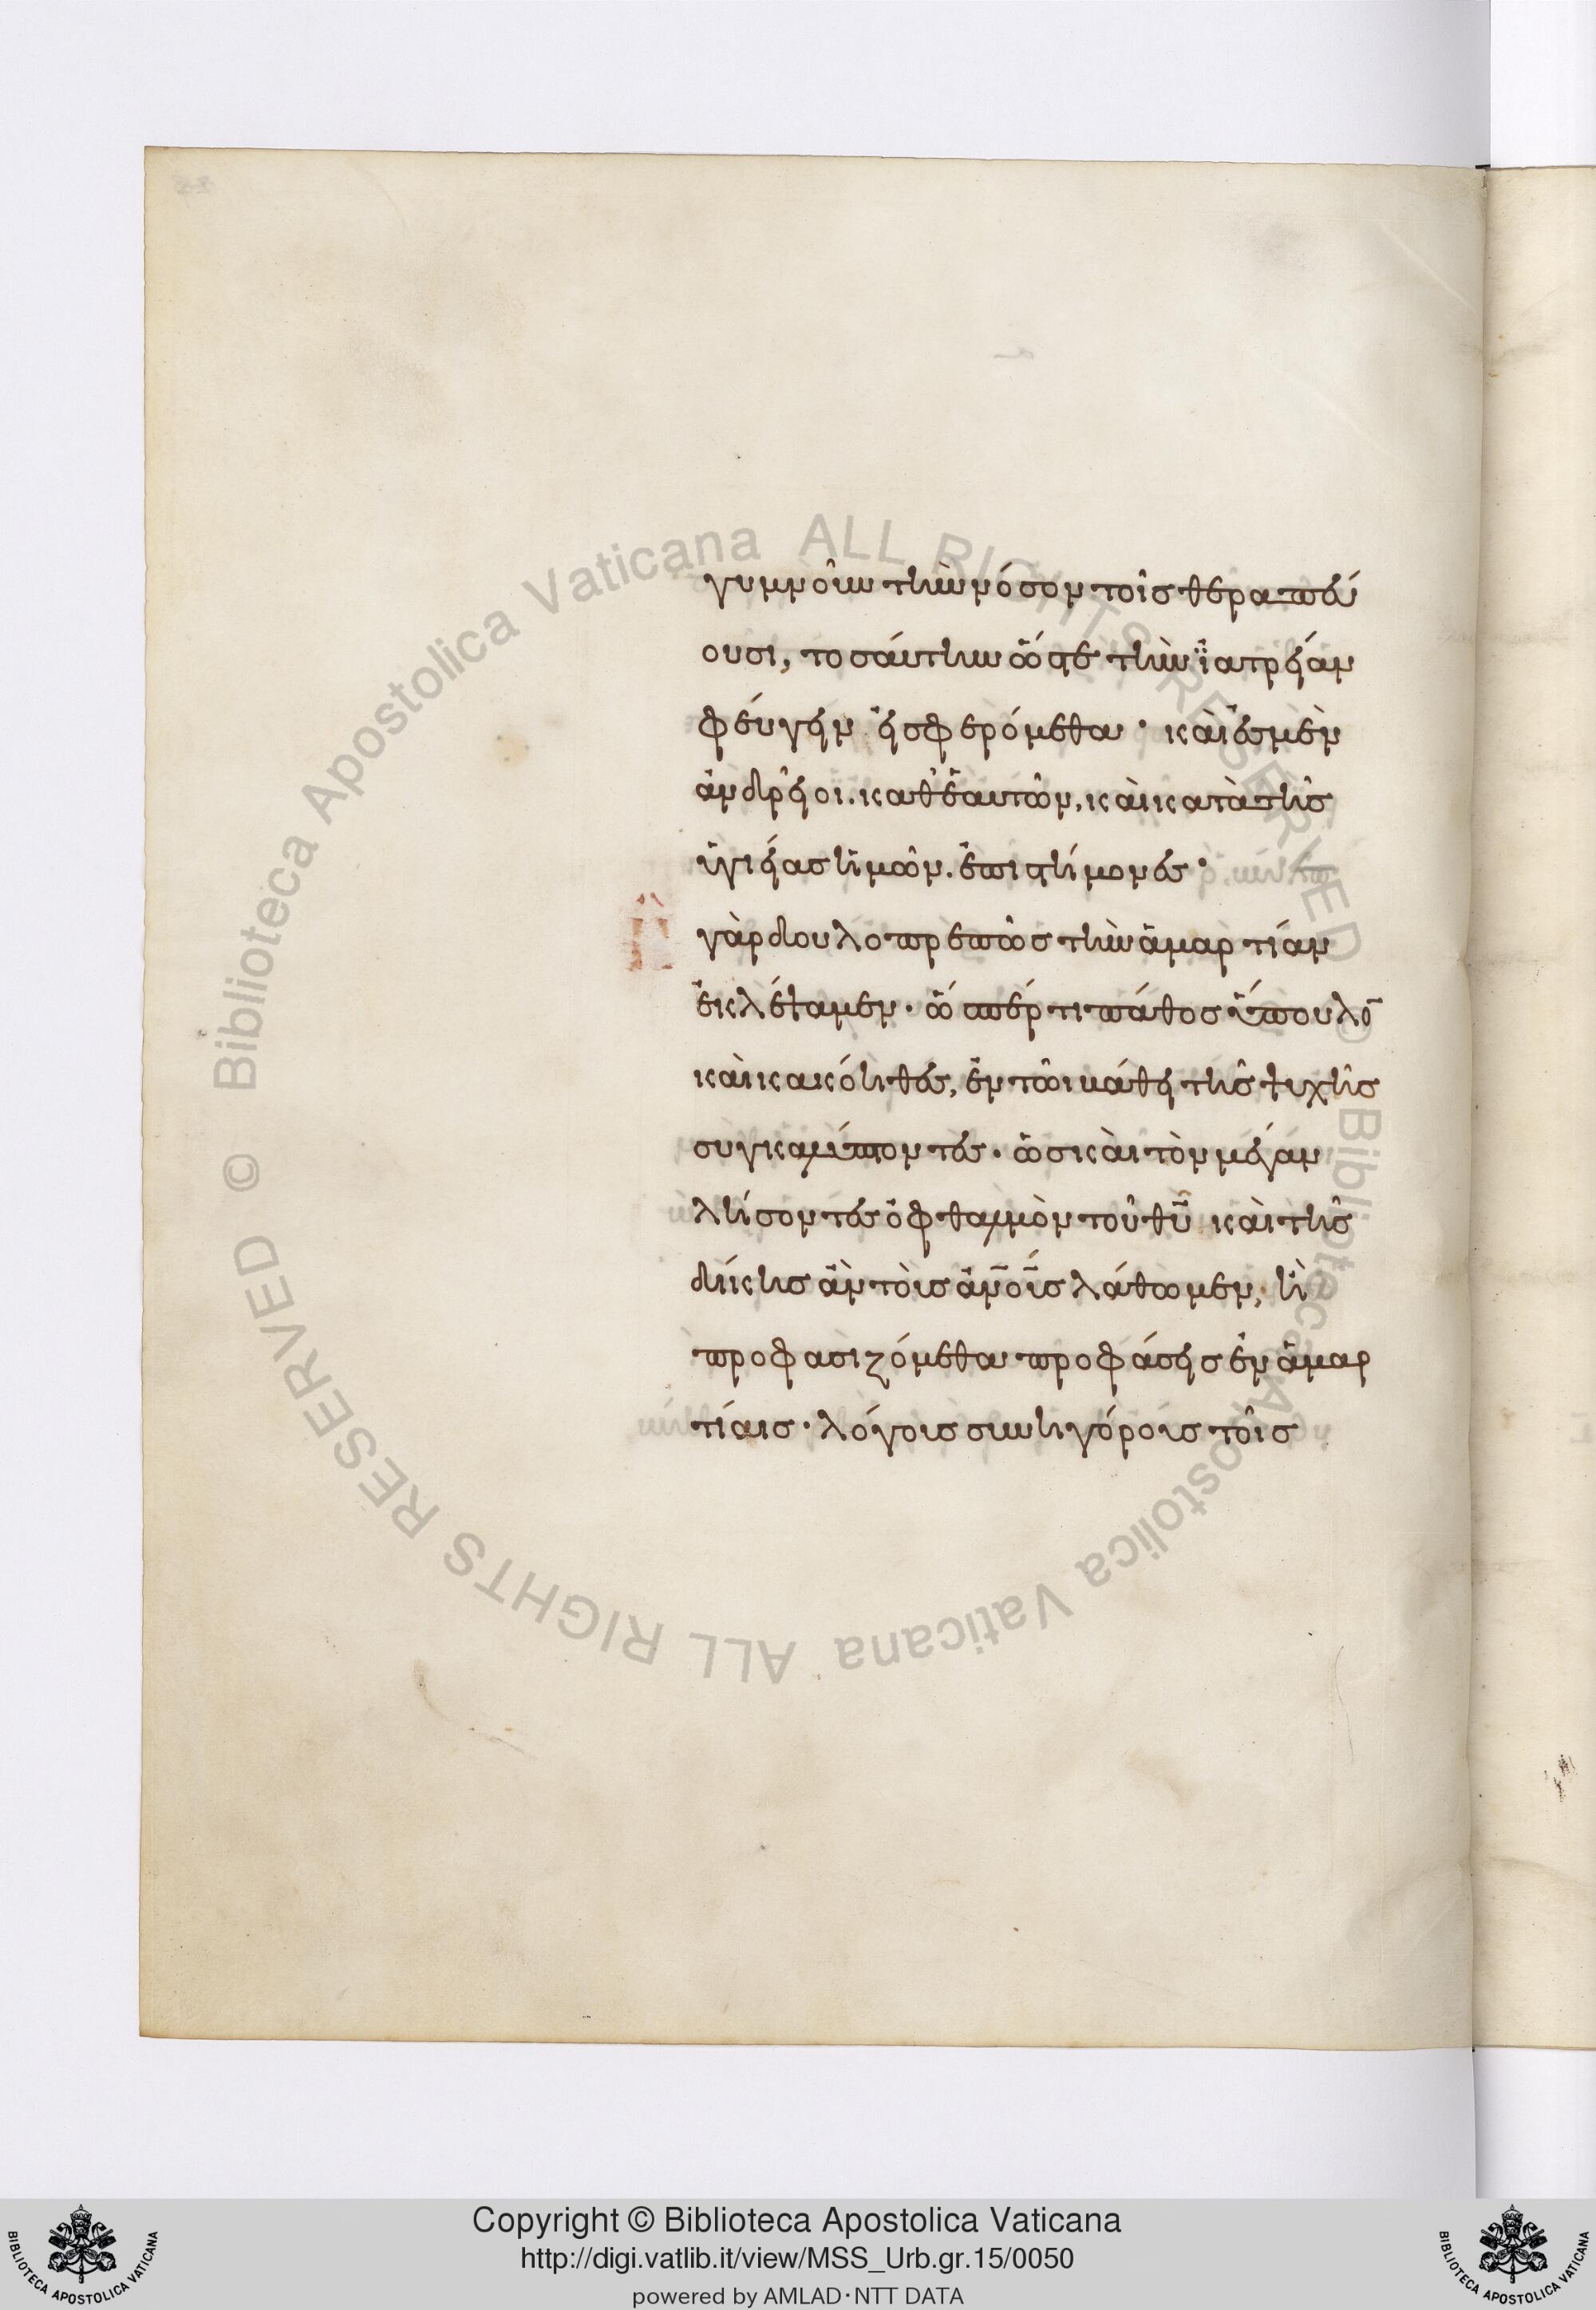 γυμνοῖν τὴν νόσον τοῖς θεραπεύ
ουσι, τοσαύτην ὥστε τὴν ἰατρείαν
φεύγειν εἰσφερόμεθα· καὶ ἐσμὲν
ἀνδρεῖοι. καθ' ἑαυτῶν, καὶ κατὰ τῆς
ὑγιείας ἡμῶν. ἐπιστήμονες·
Ἢ γὰρ δουλοπρεπῶς τὴν ἁμαρτίαν
ἐκλέψαμεν· ὥσπέρ τι πάθος ὕπουλο̅
καὶ κακόηθες, ἐν τῶι βάθει τῆς ψυχῆς
συγκαλύπτοντες· ὡς καὶ τὸν μέγαν
λήσοντες ὀφθαλμὸν τοῦ θυ̅ καὶ τῆς
δίκης ἂν τοὺς ἀν̅ους λάθωμεν, ἢ
προφασιζόμεθα προφάσεις ἐν ἁμαρ
τίαις· λόγοις συνηγόροις τοῖς
Copyright © Biblioteca Apostolica Vaticana
http://digi.vatlib.it/view/MSS_Urb.gr.15/0050
powered by AMLAD·NTT DATA
BIBLIOTECA APOSTOLICA VATICANA
BIBLIOTECA APOSTOLICA VATICANA
© Biblioteca Apostolica Vaticana ALL RIGHTS RESERVED
© Biblioteca Apostolica Vaticana ALL RIGHTS RESERVED